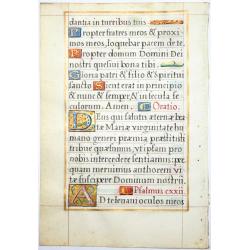 dantia in turribus tuis
Propter fratres meos & proxi
mos meos, loquebar pacem de te,
Propter domum Domini Dei
nostri quesiui bona tibi.
Gloria patri & filio & spiritui
sancto Sicut erat in principio
& nunc & semper, & in secula se
culorum. Amen. Oratio.
Deus qui salutis æternæ bea
tæ Mariæ virginitate fœcunda hu
mano generi præmia præstitisti
tribue quæsumus, vt ipsam pro
nobis intercedere sentiamus: per
quam meruimus authorem vi
tæ suscipere Dominum nostrum
Psalmus cxxii.
AD te leuaui oculos meos